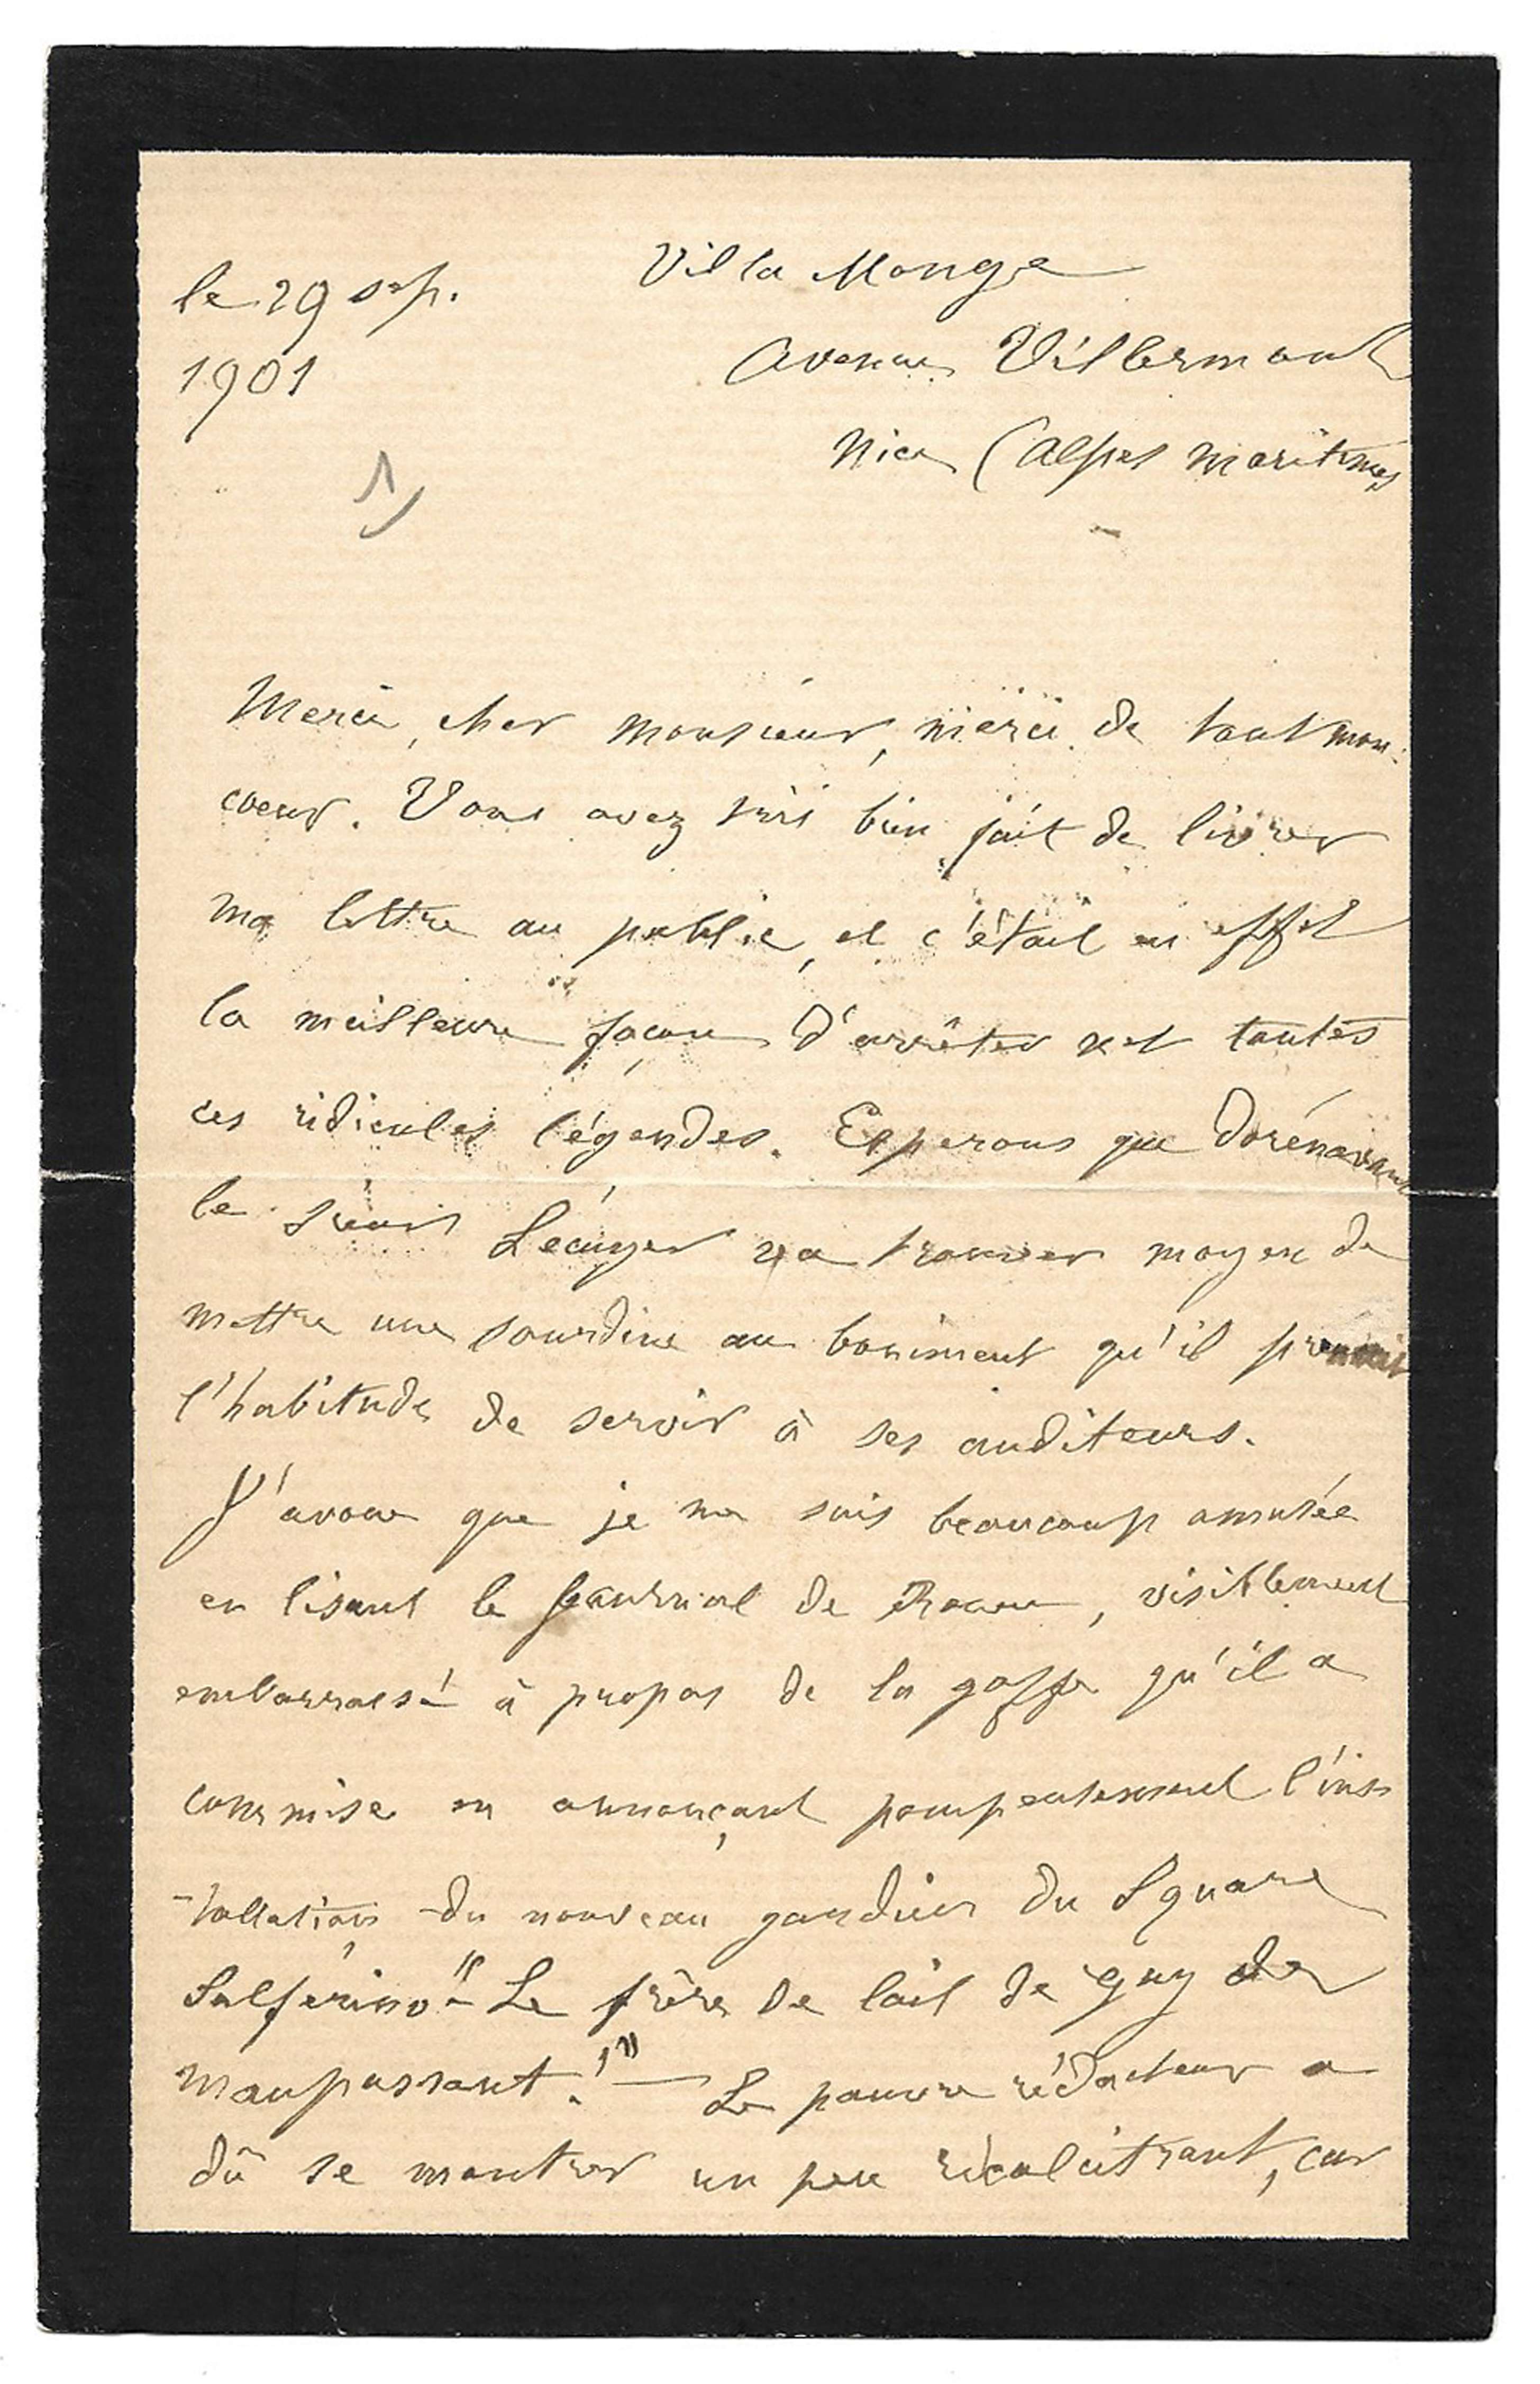 le 29 sep.
1901
Villa Monge
Avenue Villermont
Nice (Alpes Maritimes
1)
Merci, cher monsieur, merci de tout mon
coeur. Vous avez très bien fait de livrer
ma lettre au public, et c'était en effet
la meilleure façon d'arrêter net toutes
ces ridicules légendes. Esperons que dorénavant
le Lecuyer va trouver moyen de
mettre une sourdine au boniment qu'il prenait
l'habitude de servir à ses auditeurs.
J'avoue que je me suis beaucoup amusée
en lisant le Journal de Rouen, visiblement
embarrassé à propos de la gaffe qu'il a
commise en annonçant pompeusement l'ins
-tallation du nouveau gardien du Square
Solférino "- Le frère de lait de Guy de
Maupassant!" — Le pauvre rédacteur a
dû se montrer un peu récalcitrant, car